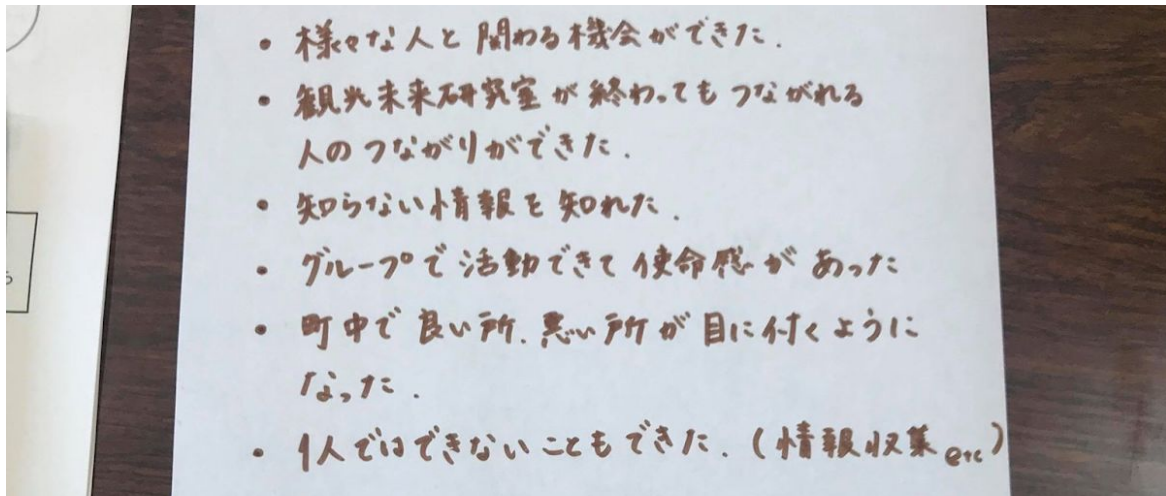 ・様々な人と関わる機会ができた.
・観光未来研究室が終わってもつながれる
人のつながりができた.
・知らない情報を知れた.
・グループで活動できて使命感があった
・町中で良い所.悪い所が目に付くように
なった.
・1人ではできないこともできた.(情報収集etc)